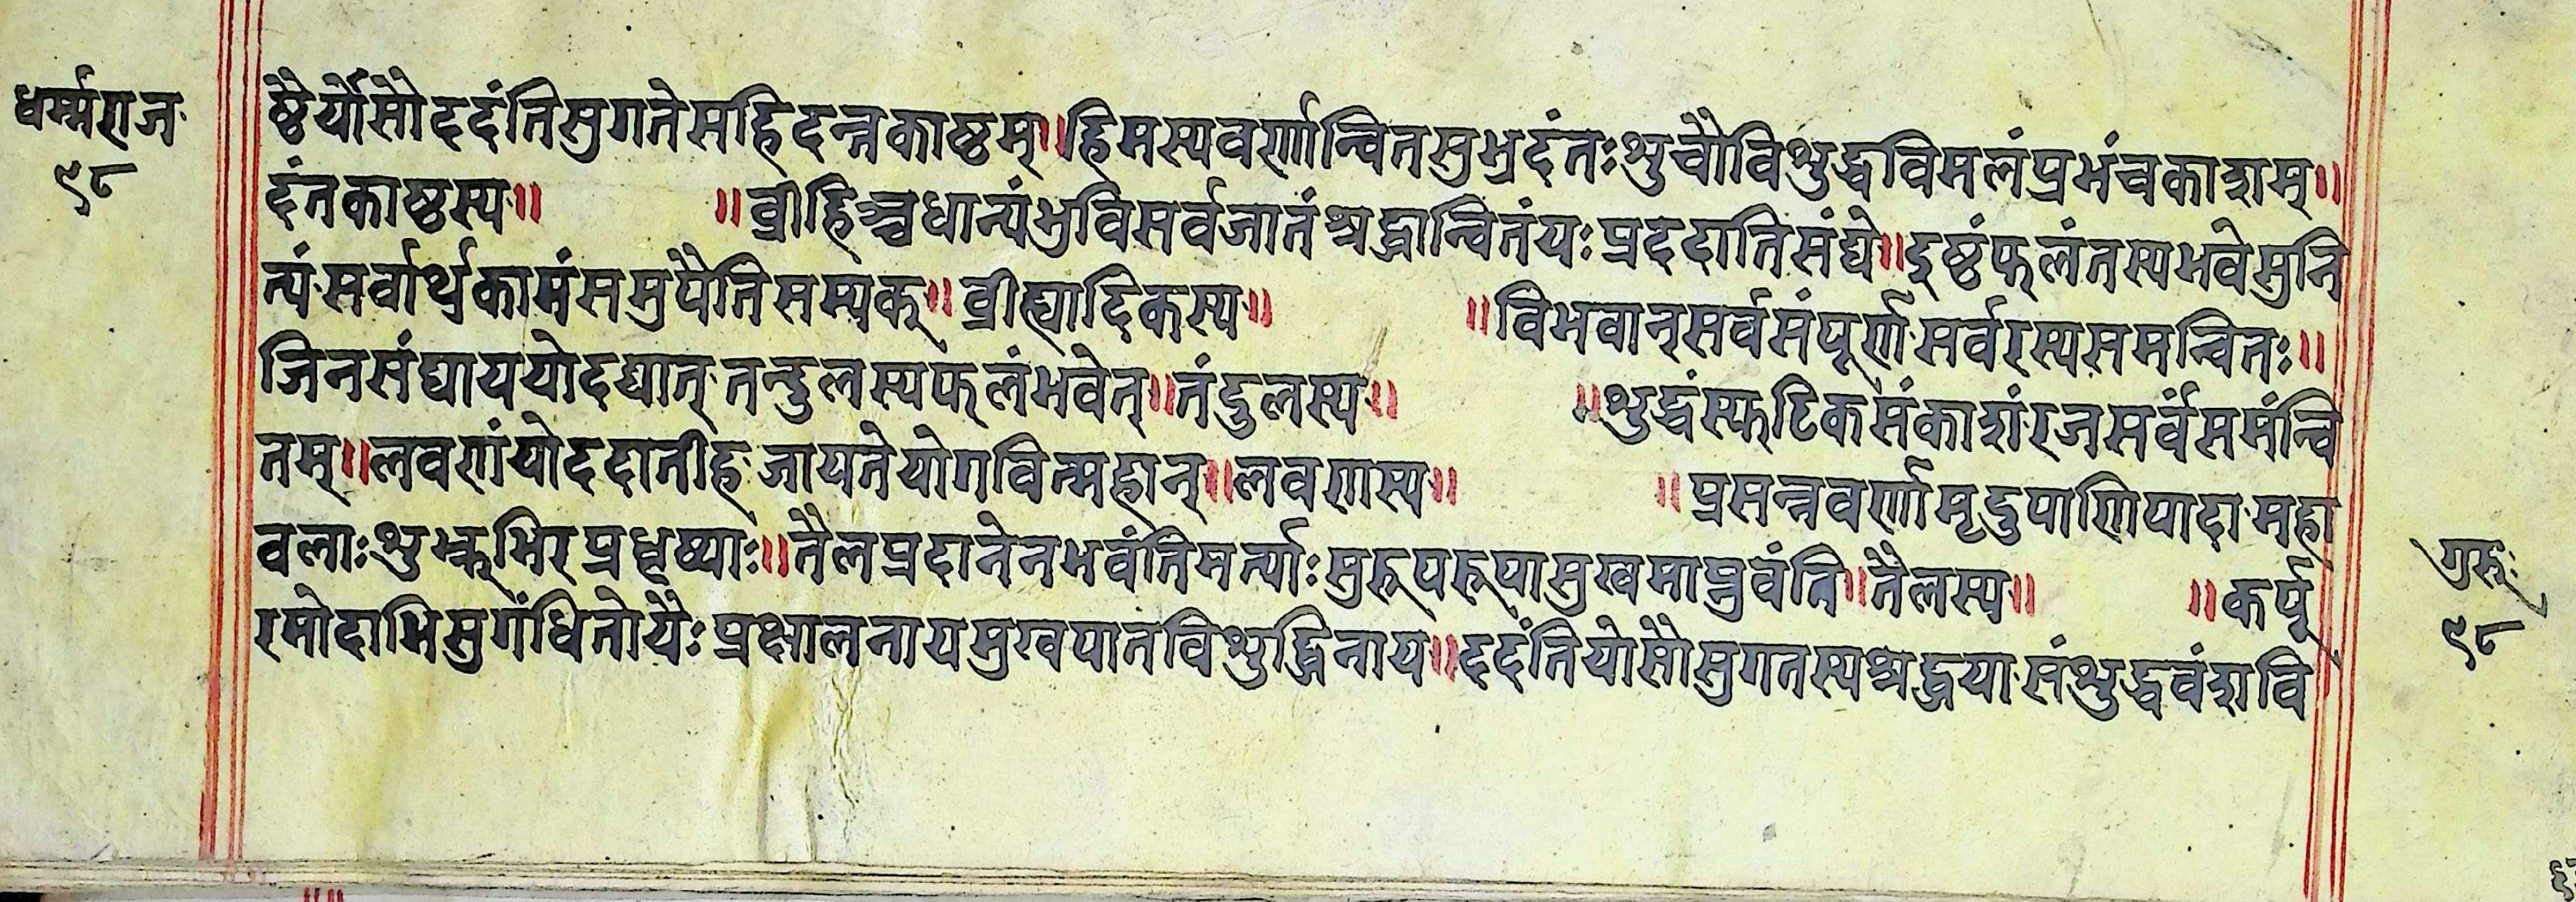 धर्म्मराज
९८
ष्ठैर्योसौददंतिसुगतेसहिदन्तकाष्ठम्॥हिमस्यवर्णान्वितसुभ्रदंतःशुचौविशुद्धविमलंप्रभंचकाशम्॥
दंतकाष्ठस्य॥ ॥व्रीहिश्चधान्यंभुविसर्वजातंश्रद्धान्वितंयःप्रददातिसंघे॥दृष्ठंफलंतस्यभवेसुनि
त्यंसर्वार्थकामंसमुपैतिसम्यक्॥व्रीह्यादिकस्य॥ ॥विभवान्सर्वसंपूर्णसर्वरस्यसमन्वितः॥
जिनसंघाययोदद्यात्तन्दुलस्यफलंभवेत्॥तंदुलस्य॥ ॥शुद्धंस्फटिकसंकाशंरजसर्वसमंन्वि
तम्॥लवणंयोददातीहजायतेयोगवित्महान्॥लवणस्य॥ ॥प्रसन्नवर्णामृदुपाणिपादामहा
वलाःशुभिरप्रधृष्याः॥तैलप्रदानेनभवंतिमर्त्याःसुरूपरूपासुखमाप्नुवंति॥तैलस्य॥ ॥कर्पू
रमोदाभिसुगंधितोयैःप्रक्षालनायमुखपातविशुद्धिनाय॥ददंतियोसौसुगतस्यश्रद्धयासंशुद्धवंशवि
गुरुः
९८